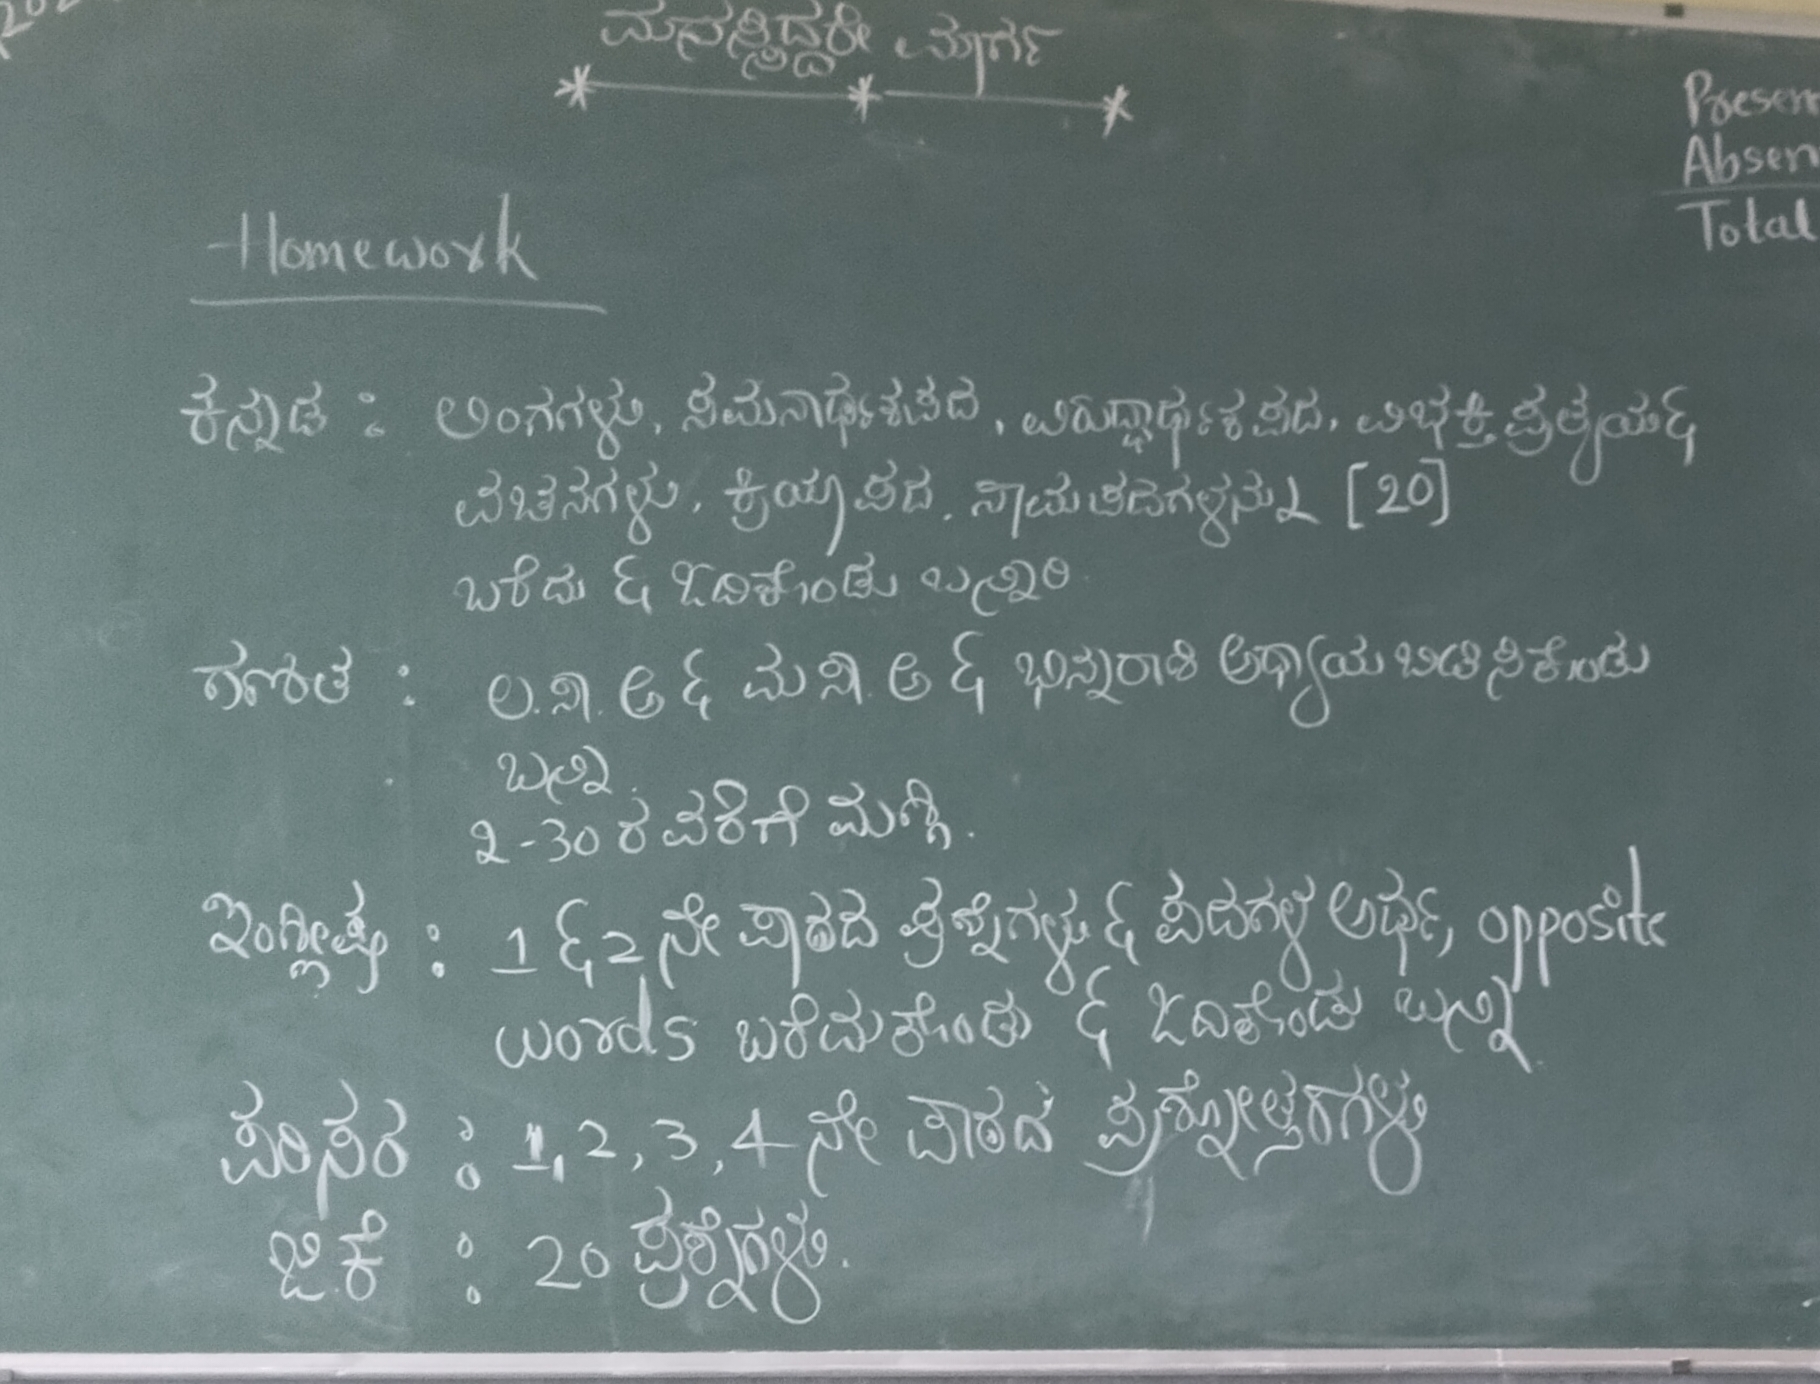 202
ಮನಸ್ಸಿದ್ದರೇ ಮಾರ್ಗ
Presen
Absen
Total
Homework
ಕನ್ನಡ : ಲಿಂಗಗಳು, ಸಮನಾರ್ಥಕಪದ, ವಿರುದ್ಧಾರ್ಥಕ ಪದ, ವಿಭಕ್ತಿ ಪ್ರತ್ಯಯ &
ವಚನಗಳು, ಕ್ರಿಯಾ ಪದ, ನಾಮಪದಗಳನ್ನು [20]
ಬರೆದು & ಓದಿಕೊಂಡು ಬನ್ನಿರಿ.
ಗಣಿತ : ಲ.ಸಾ.ಅ & ಮ ಸಾ.ಅ & ಭಿನ್ನರಾಶಿ ಅಧ್ಯಾಯ ಬಿಡಿಸಿಕೊಂಡು
ಬನ್ನಿ.
2-30 ರ ವರೆಗೆ ಮಗ್ಗಿ.
ಇಂಗ್ಲೀಷ : 1 & 2 ನೇ ಪಾಠದ ಪ್ರಶ್ನೆಗಳು & ಪದಗಳ ಅರ್ಥ, opposite
words ಬರೆದುಕೊಂಡು & ಓದಿಕೊಂಡು ಬನ್ನಿ.
ಪರಿಸರ : 1, 2, 3, 4 ನೇ ಪಾಠದ ಪ್ರಶ್ನೋತ್ತರಗಳು
ಜಿ.ಕೆ : 20 ಪ್ರಶ್ನೆಗಳು.